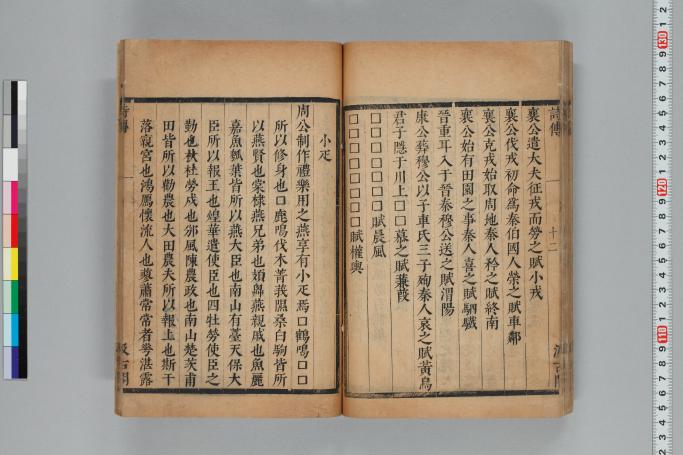 詩傳
十二
襄公遣大夫征戎而勞之賦小戎
襄公伐戎初命爲秦伯國人榮之賦車鄰
襄公克戎始取周地秦人矜之賦終南
襄公始有田園之事秦人喜之賦駟驖
晉重耳入于晉秦穆公送之賦渭陽
康公葬穆公以子車氏三子殉秦人哀之賦黃鳥
君子隱于川上□□慕之賦蒹葭
□□□□□□□□賦晨風
□□□□□□□□□賦權輿
小疋
周公制作禮樂用之燕享有小疋焉□鶴鳴□□
所以修身也□鹿鳴伐木菁莪隰桑白駒皆所
以燕賢也棠棣燕兄弟也頍弁燕親戚也魚麗
嘉魚瓠葉皆所以燕大臣也南山有臺天保大
臣所以報王也煌華遣使臣也四牡勞使臣之
勤也杕杜勞戍也邠風陳農政也南山楚茨甫
田皆所以勸農也大田農夫所以報上也斯干
落寢宮也鴻鴈懷流人也蓼蕭常常者華湛露
詩傳
汲古閣